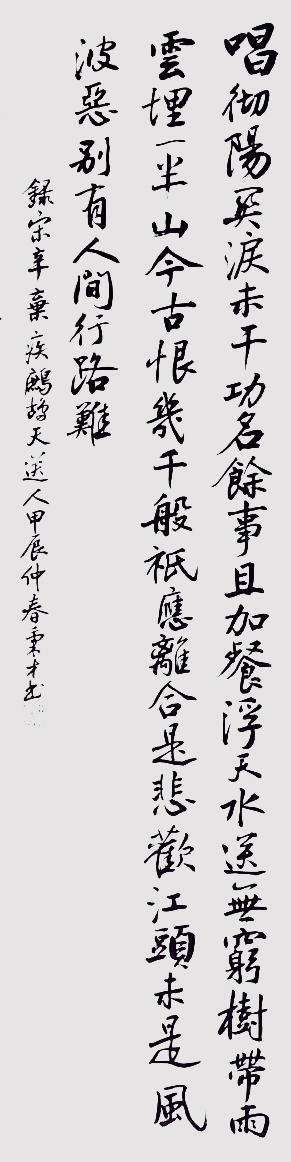 唱徹陽關淚未干功名餘事且加餐浮天水送無窮樹帶雨
雲埋一半山今古恨幾千般衹應離合是悲歡江頭未是風
波惡別有人間行路難
錄宋辛棄疾鷓鴣天送人甲辰仲春秉才书